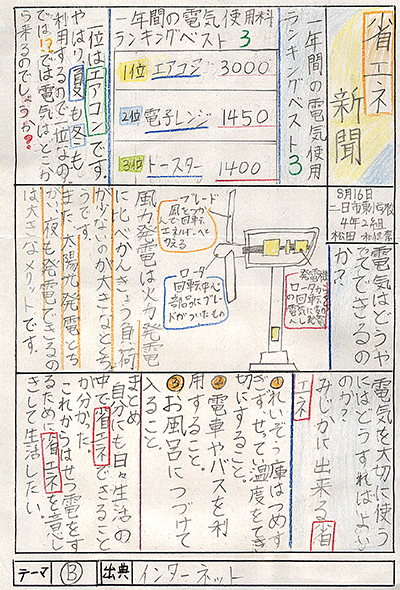 省エネ
新聞
一年間の電気使用
ランキングベスト3
一年間の電気使用料
ランキングベスト3
1位 エアコン 3000
2位 電子レンジ 1450
3位 トースター 1400
一位はエアコンです。
やはり夏も冬も
利用するので一位なの
では!?では電気はどこか
ら来るのでしょうか?
8月16日
二日市東小学校
4年2組
松田
電気はどうや
ってできるの
か?
ブレード
風で羽が回転
ロータ
回転中心
部品にブレー
ドがついたもの
発電機
風力発電は火力発電
に比べかんきょう負荷
がないのが大きなとくち
ょうです。
また、太陽光発電とち
がい、夜も発電できるの
は大きなメリットです。
電気を大切に使う
にはどうすればよい
のか?
みじかに出来る省
エネ
①れいぞう庫はつめす
ぎずせってい温度をてき
切にすること。
②電車やバスを利
用すること。
③お風呂につづけて
入ること。
まとめ
自分にも日々生活の
中で省エネできること
が分かった。
これからはせつ電をす
るために省エネを意し
きして生活したい。
テーマ B 出典 インターネット